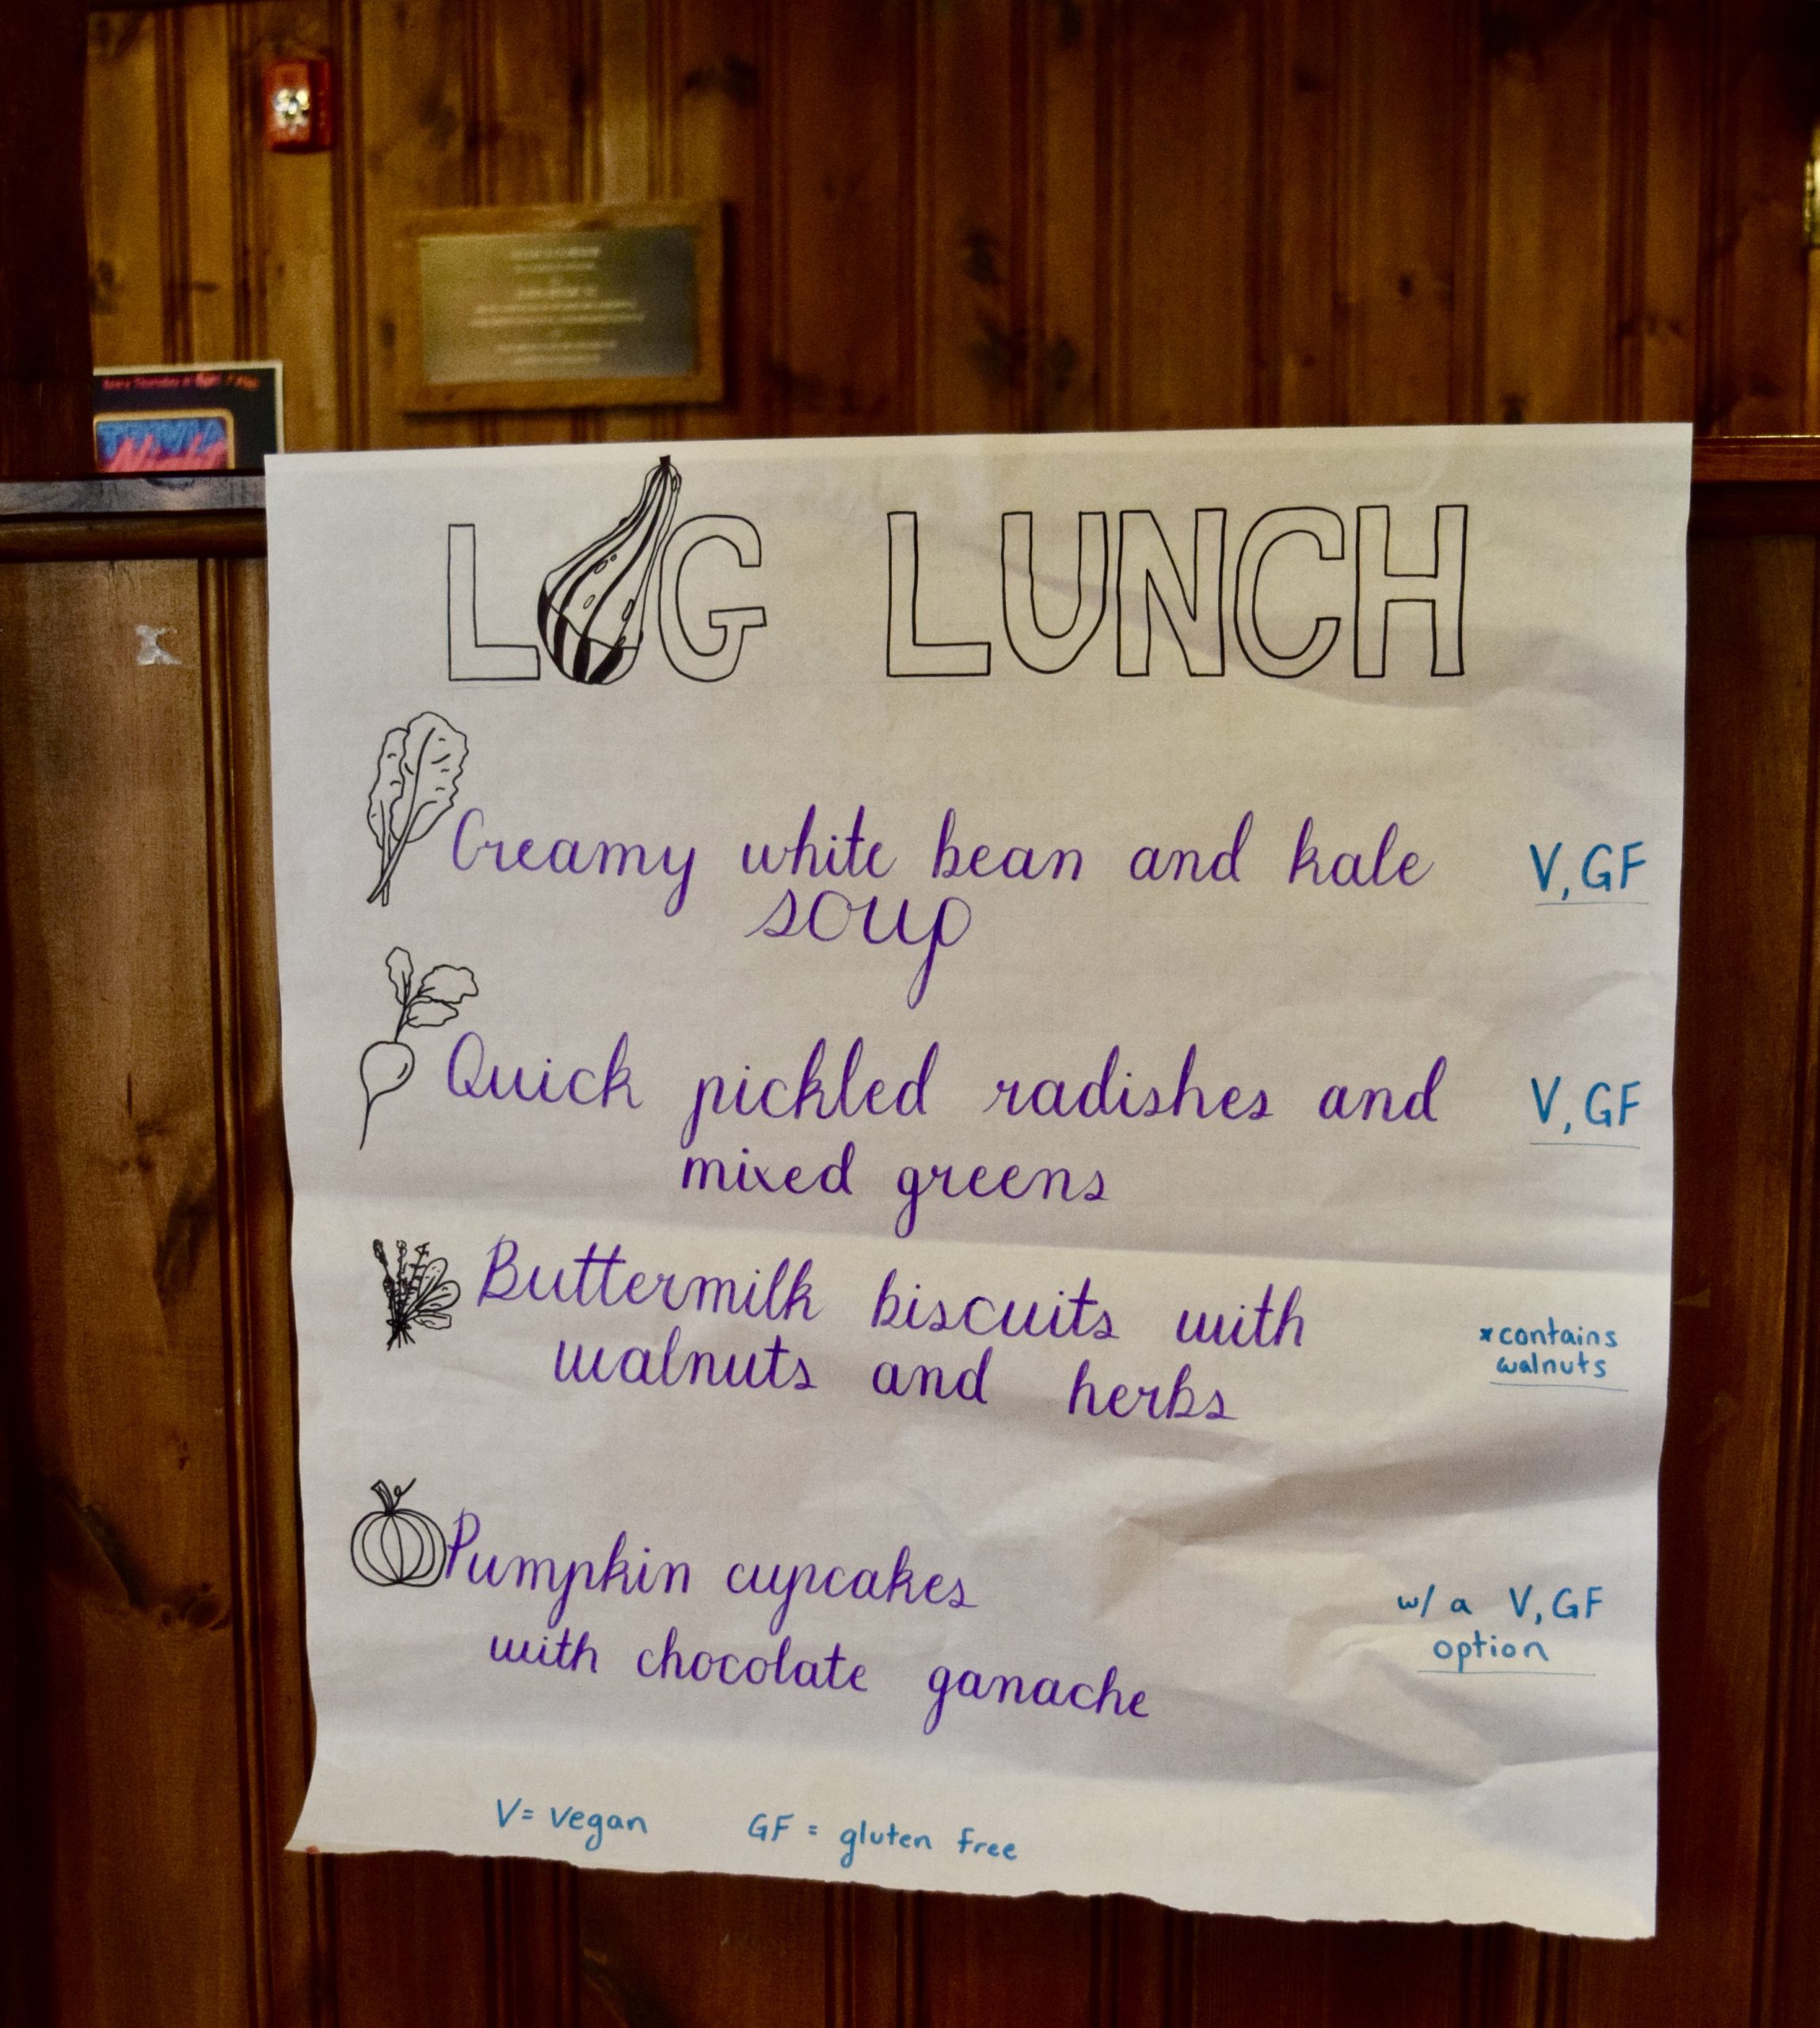 TRIVIA
Night
LOG LUNCH
Creamy white bean and kale V, GF
soup
Quick pickled radishes and V, GF
mixed greens
Buttermilk biscuits with *contains
walnuts and herbs walnuts
Pumpkin cupcakes w/ a V, GF
with chocolate ganache option
V = vegan GF = gluten free